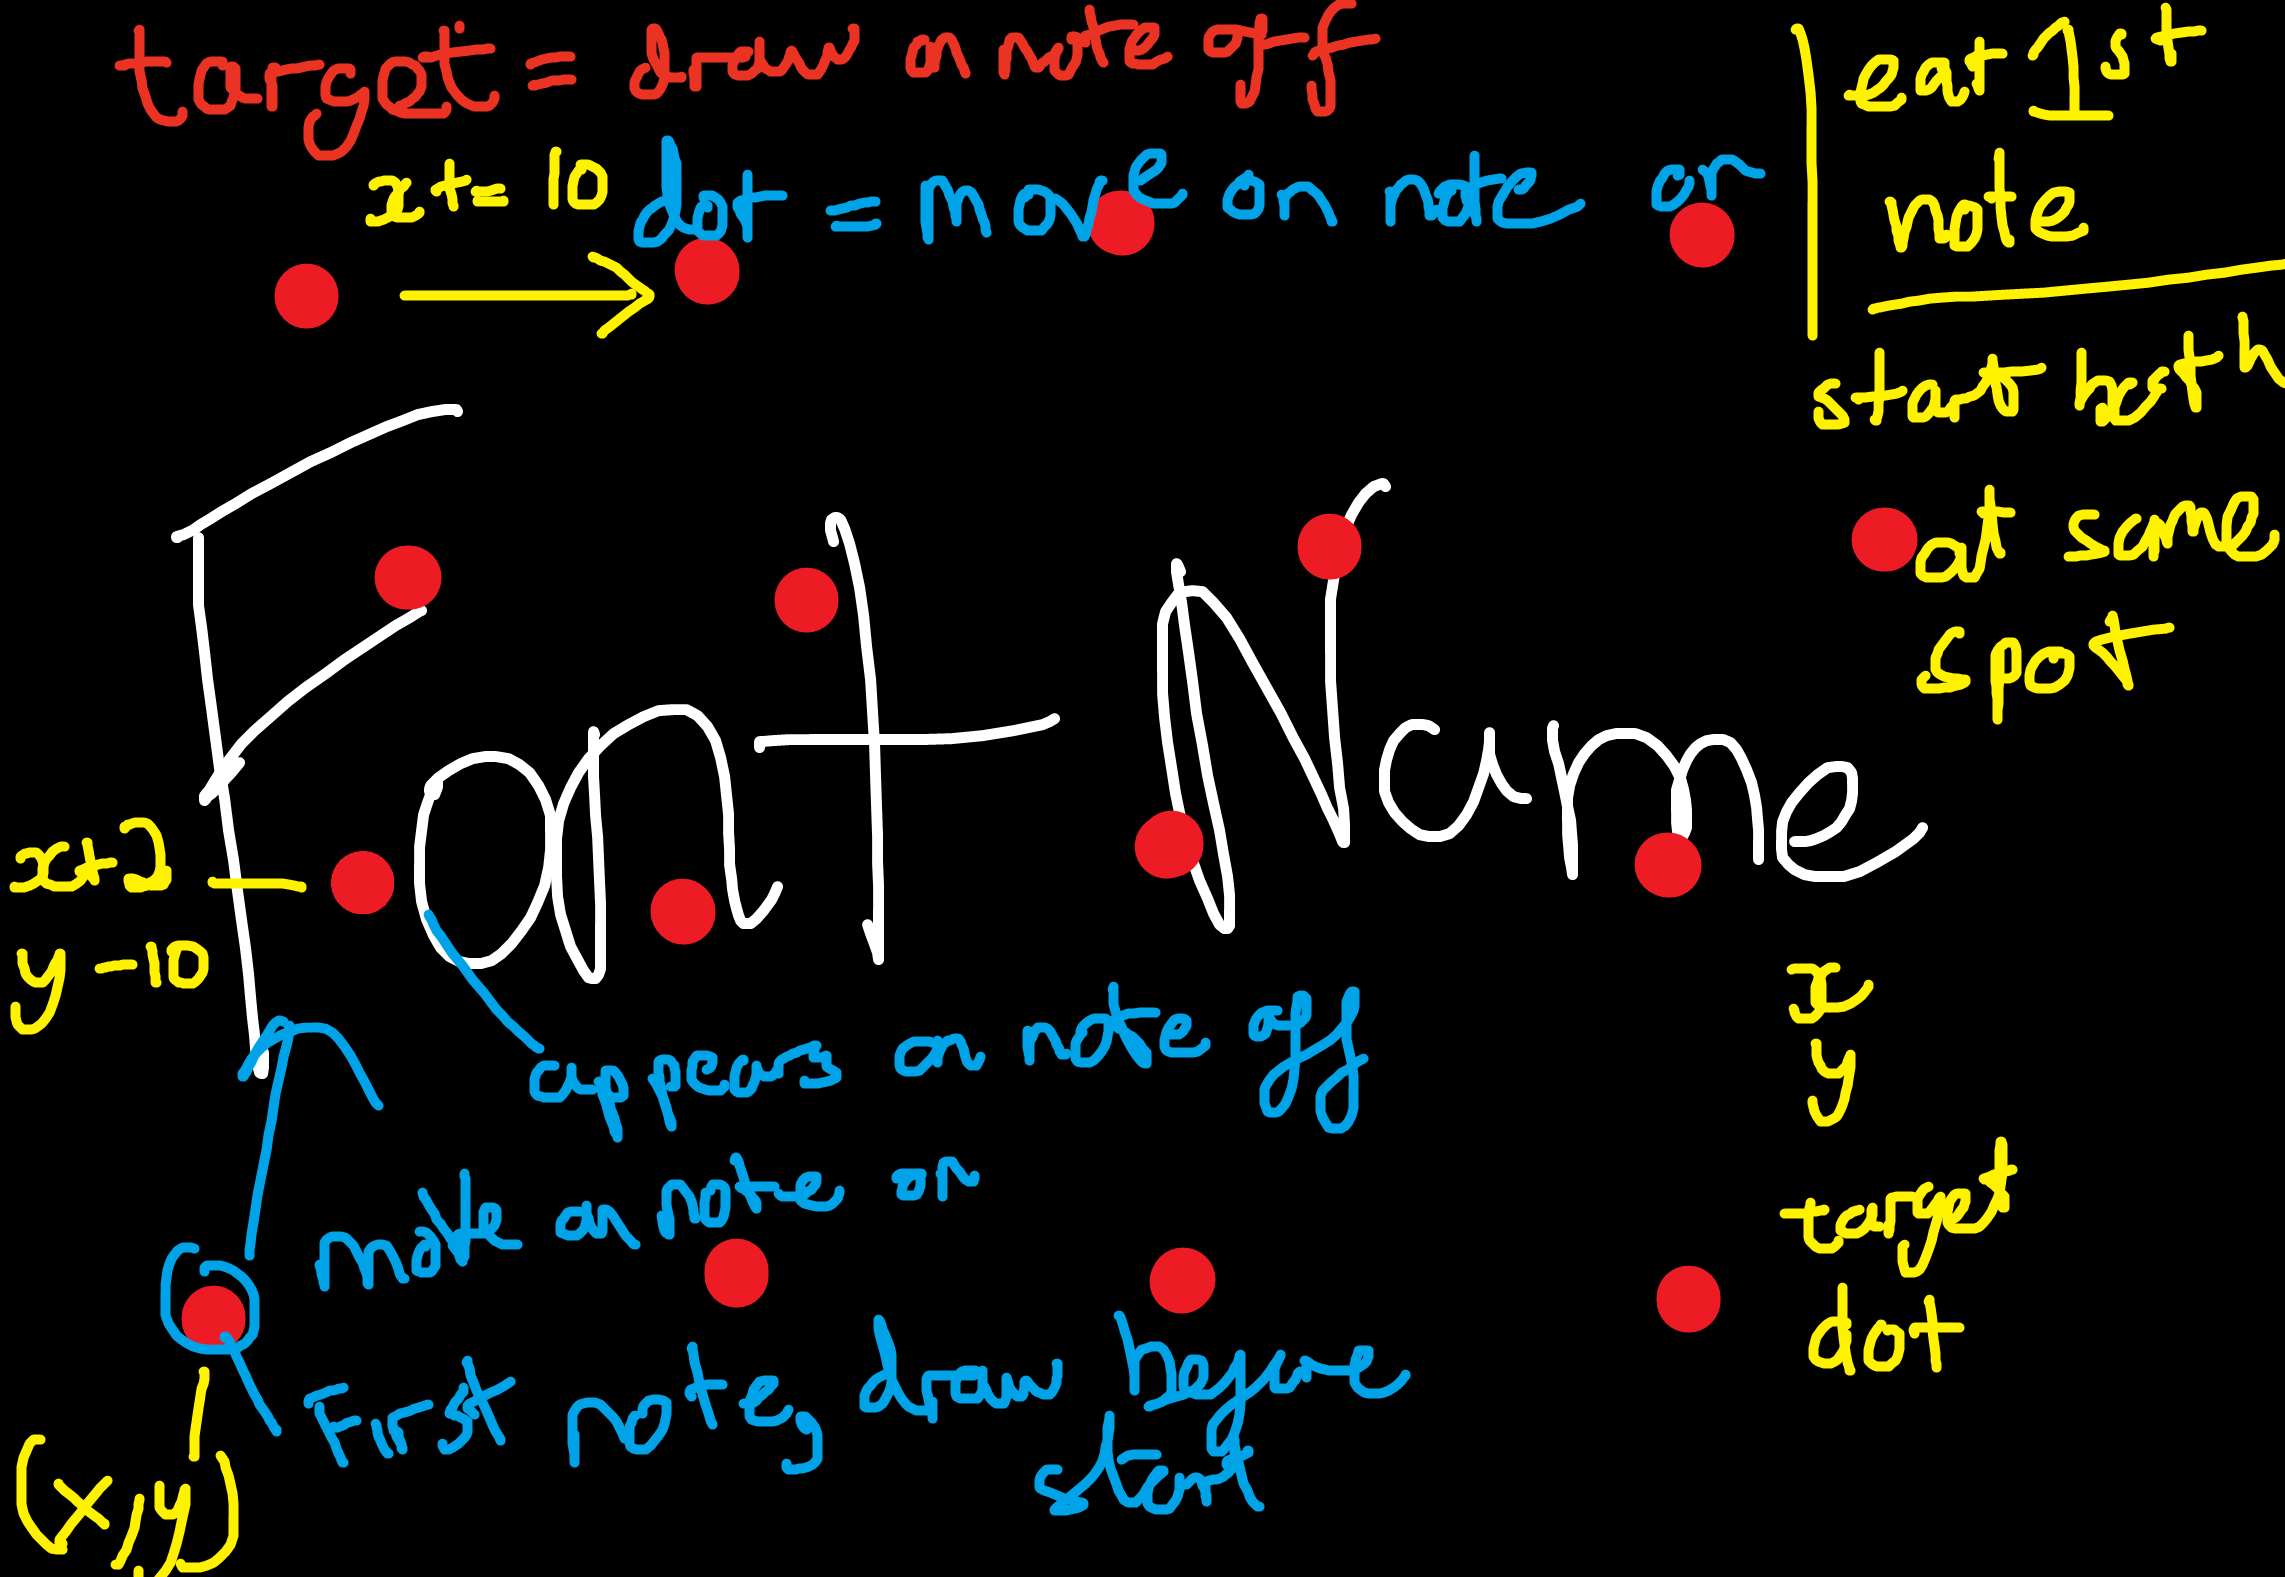 target = draw on note off
x += 10
dot = move on note on
eat 1st
note
start both
at same
spot
Font Name
x+2
y-10
appears on note off
move on note on
First note, draw before
start
(x,y)
x
y
target
dot